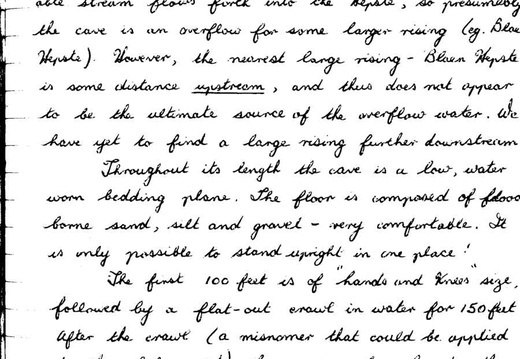 able stream flows forth into the Hepste, so presumably
the cave is an overflow for some larger rising (eg. Blaen
Hepste). However, the nearest large rising - Blaen Hepste
is some distance upstream, and thus does not appear
to be the ultimate source of the overflow water. We
have yet to find a large rising further downstream
Throughout its length the cave is a low, water
worn bedding plane. The floor is composed of flood
borne sand, silt and gravel - very comfortable. It
is only possible to stand upright in one place!
The first 100 feet is of "hands and knees" size,
followed by a flat-out crawl in water for 150 feet
After the crawl (a misnomer that could be applied